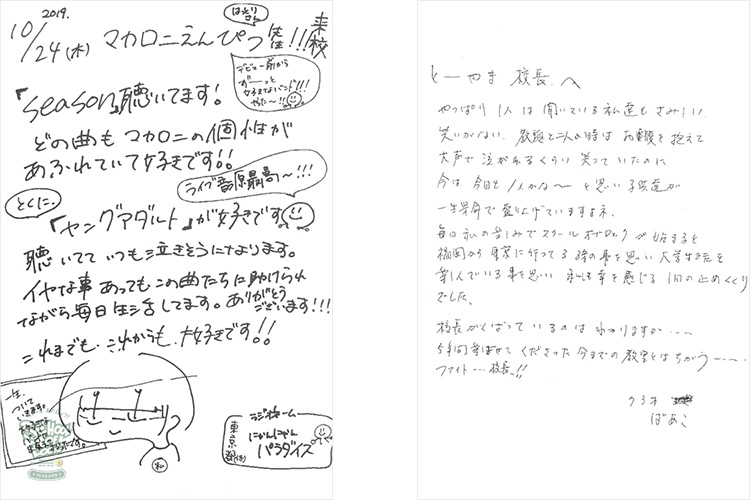 2019.
10/24(木) マカロニえんぴつ先生!!!来校
はっとりさん
デビュー前から
ずーーっと
好きなバンド!!!
やったー!!
『season』聴いてます!
どの曲もマカロニの個性が
あふれていて好きです!!
ライブ音源最高〜!!!
とくに。
『ヤングアダルト』が好きです
聴いてていつも泣きそうになります。
イヤな事あってもこの曲たちに助けられ
ながら毎日生活してます。ありがとう
ございます!!!
これまでも、これからも、大好きです!!
一生、
ついて
いきます。
ラジオネーム
東京都
にゃんにゃん
パラダイス
とーやま校長へ
やっぱり1人は聞いている私達もさみしい
笑いがない。教頭と二人の時はお腹を抱えて
大声で泣かれるくらい笑っていたのに
今は今日も1人かな〜と思い子供達が
一生懸命で盛り上げていますよネ。
毎日私の楽しみでスクールオブロックが始まると
福岡から東京に行ってる孫の事を思い大学生活を
楽しんでいる事を思い私も幸を感じる1日の止めくくり
でした。
校長がんばっているのはわかりますが、、、
5年間学ばせてくださった今までの教室とはちがう〜、、
ファイト…校長!!
ばあこ